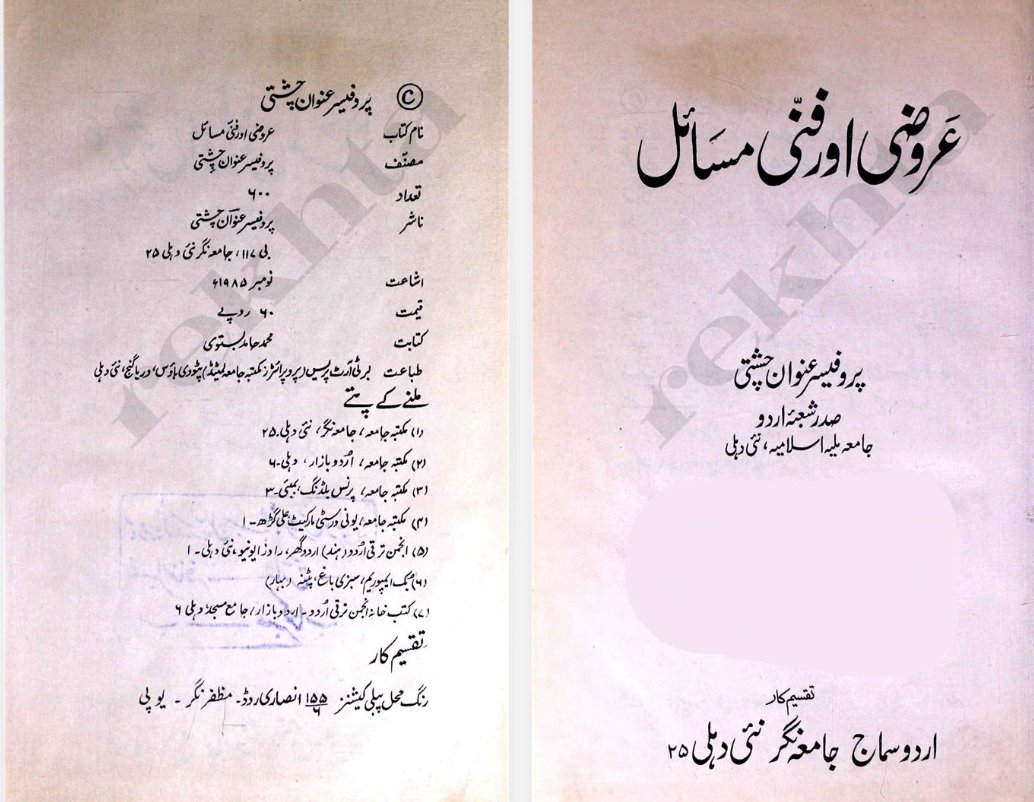 عَروضی اور فنّی مسَائل
پروفیسر عنوان چشتی
صدر شعبۂ اردو
جامعہ ملیہ اسلامیہ، نئی دہلی
تقسیم کار
اردو سماج جامعہ نگر نئی دہلی ۲۵
rekhta
© پروفیسر عنوان چشتی
نام کتاب عروضی اور فنّی مسائل
مصنّف پروفیسر عنوان چشتی
تعداد ۶۰۰
ناشر پروفیسر عنوان چشتی
بی ۱۱۷، جامعہ نگر نئی دہلی ۲۵
اشاعت نومبر ۱۹۸۵ء
قیمت ۶۰ روپے
کتابت محمد حامد بستوی
طباعت برٹی آرٹ پریس (پروپرائٹرز مکتبہ جامعہ لمیٹڈ) پٹودی ہاؤس، دریا گنج، نئی دہلی
ملنے کے پتے
(۱) مکتبہ جامعہ، جامعہ نگر، نئی دہلی۔۲۵
(۲) مکتبہ جامعہ، اُردو بازار، دہلی۔۶
(۳) مکتبہ جامعہ، پرنس بلڈنگ، بمبئی۔۳
(۴) مکتبہ جامعہ، یونی ورسٹی مارکیٹ، علی گڑھ۔۱
(۵) انجمن ترقی اُردو (ہند) اردو گھر، راوز ایونیو، نئی دہلی۔۱
(۶) بک ایمپوریم، سبزی باغ، پٹنہ (بہار)
(۷) کتب خانہ انجمن ترقی اُردو۔ اردو بازار، جامع مسجد دہلی ۶
تقسیم کار
رنگ محل پبلی کیشنز ۱۵۵/۶ انصاری روڈ۔ مظفر نگر۔ یو پی
rekhta